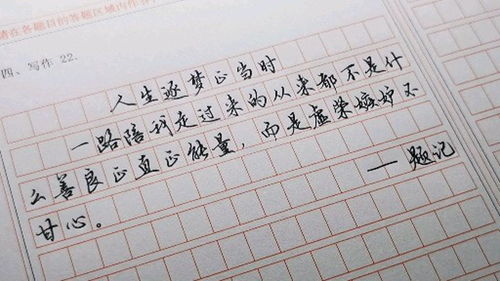 请在各题目的答题区域内作答
四、写作 22.
人生逐梦正当时
一路陪我走过来的从来都不是什
么善良正直正能量，而是虚荣嫉妒不
甘心。
——题记